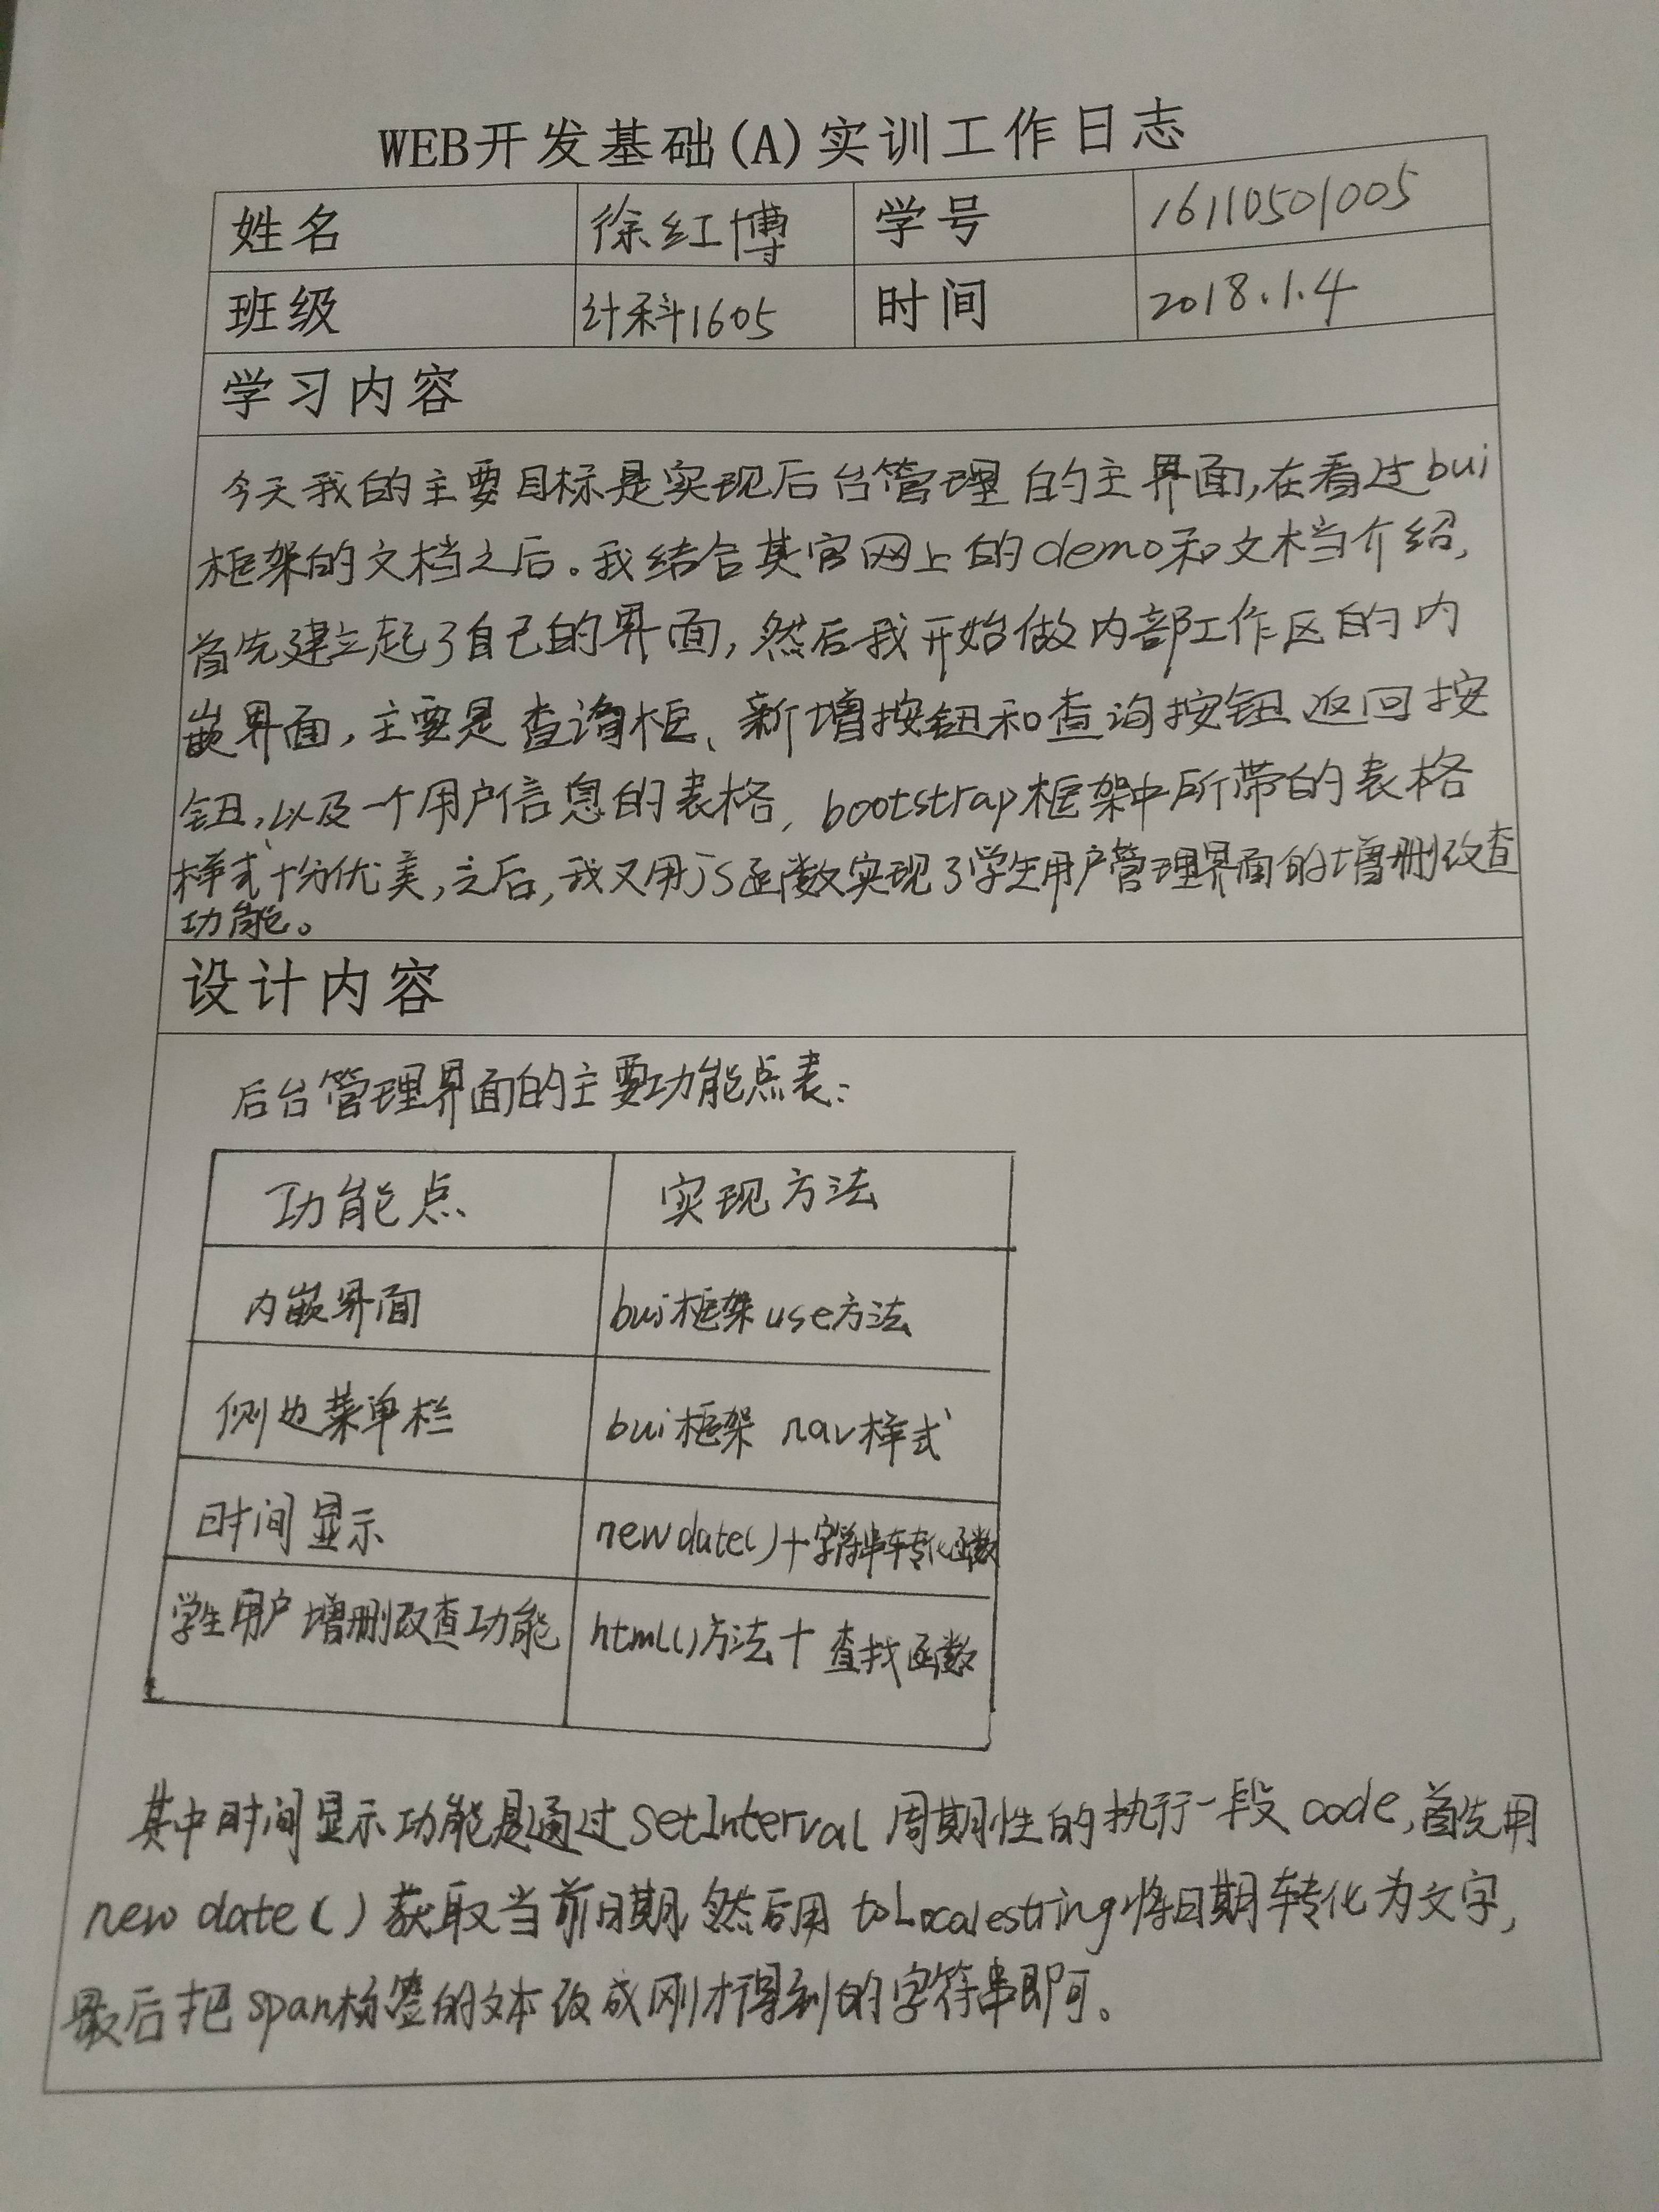 WEB开发基础(A)实训工作日志
姓名 徐红博 学号 16110501005
班级 计科1605 时间 2018.1.4
学习内容
今天我的主要目标是实现后台管理的主界面,在看过bui
框架的文档之后。我结合其官网上的demo和文档介绍,
首先建立起了自己的界面,然后我开始做内部工作区的内
嵌界面,主要是查询框、新增按钮和查询按钮返回按
钮,以及一个用户信息的表格,bootstrap框架中所带的表格
样式十份优美,之后,我又用js函数实现了学生用户管理界面的增删改查
功能。
设计内容
后台管理界面的主要功能点表:
功能点 实现方法
内嵌界面 bui框架use方法
侧边菜单栏 bui框架 nav样式
时间显示 new date()+字符串转化函数
学生用户增删改查功能 html()方法+查找函数
其中时间显示功能是通过setInterval周期性的执行一段code,首先用
new date()获取当前日期,然后用toLocalestring将日期转化为文字,
最后把span标签的文本改成刚才得到的字符串即可。